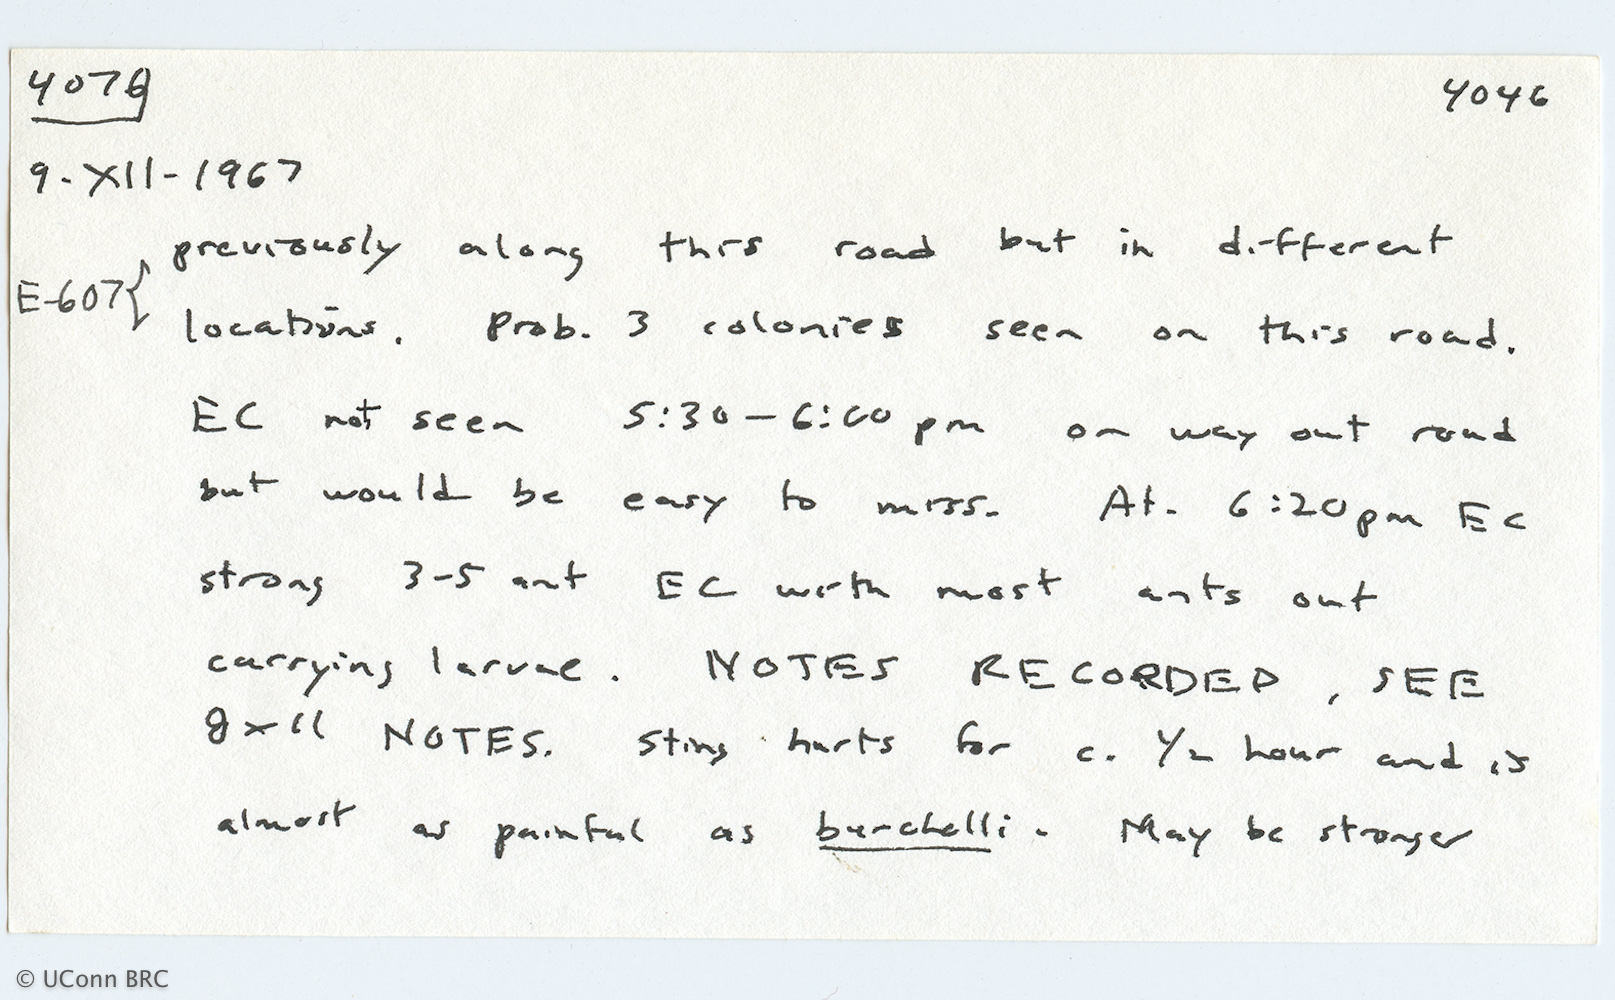 4046
9-XII-1967
previously along this road but in different
E-607{
locations. Prob. 3 colonies seen on this road.
EC not seen 5:30-6:00 pm on way out road
but would be easy to miss. At 6:20pm EC
strong 3-5 ant EC with most ants out
carrying larvae. NOTES RECORDED, SEE
XII NOTES. Sting hurts for c. 1/2 hour and is
almost as painful as burchelli. May be stronger
© UConn BRC